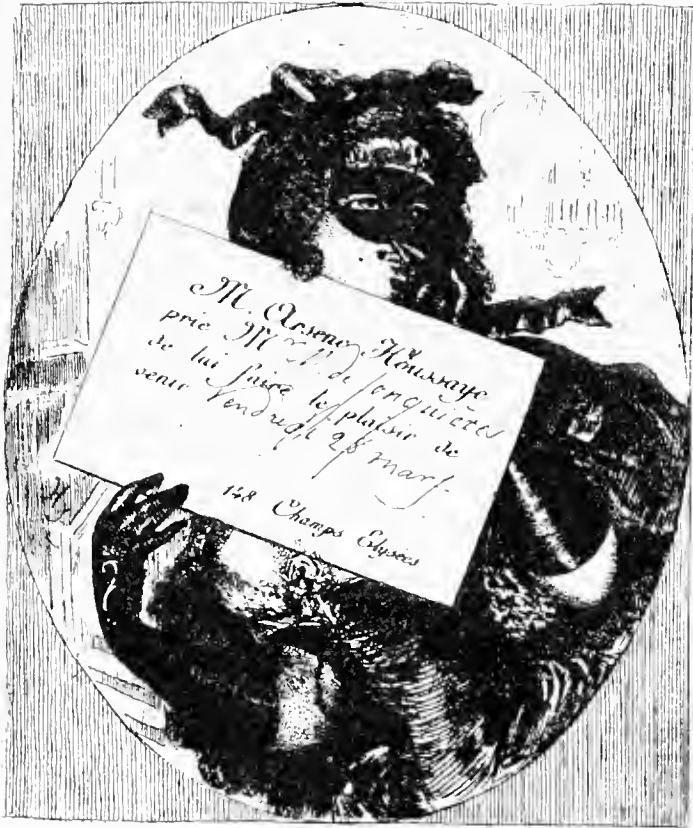 M. Arsène Houssaye
prie M. de Jonquières
de lui faire le plaisir de
venir Vendredi 28 mars.
148 Champs Elysées